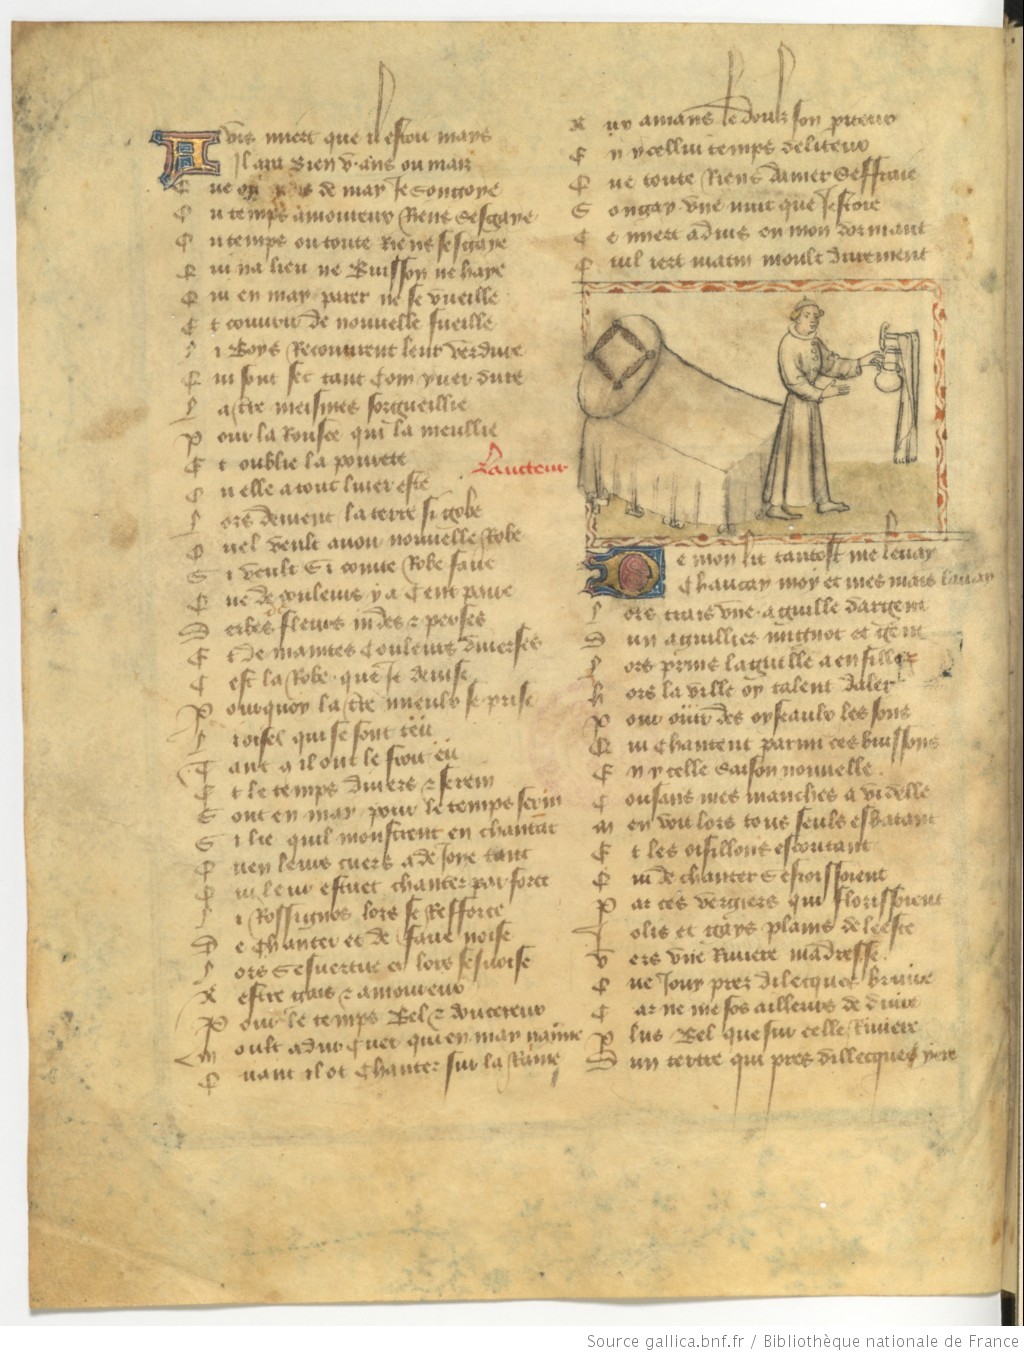 Avis miert que il estoit mays
Il a ja bien v. ans ou mais
Que en may Je songoye
Ou temps amoureux Riens sesgaye
Ou temps ou toute Riens sesgaye
Qui na lieu ne Buisson ne haye
Qui en may parer ne se vueille
Et couvrir de nouvelle fueille
Li Boys Recouvrent leur verdure
Qui sont sec tant Com yver dure
La tre meismes sorgueillie
Pour la Rousee qui la meullie
Et oublie la povrete
Laucteur
Ou elle a tout liver este
Lors devient la terre si gobe
Quel veult avoir nouvelle Robe
Si veult Si cointe Robe faire
Que de couleurs y a Cent paire
Derbes fleurs indes &amp; perses
Et De maintes Couleurs diverses
Cest la Robe que Je devise
Pourquoy la tre mieulx se prise
Li oisel qui se sont teü
Tant quil ont le froit eü
Et le temps divers &amp; frerin
Sont en may pour le temps serin
Si lie quil monstrent en chantat
Quen leurs cuers a de Joye tant
Qui leur estuet chanter par force
Li Rossignos lors se Refforce
De Chanter et de faire noise
Lors Sesvertue et lors senvoise
Restre gais &amp; amoureux
Pour le temps Bel &amp; doucereux
Moult a dur Cuer qui en may naime
Quant il ot Chanter sur la Raime
Aux amans le doulz son piteux
En ycellui temps deliteux
Que toute Riens damer Seffraie
Songay une nuit que Jestoie
Ce miert advis en mon dormant
Quil iert matin moult durement
De mon lit tantost me levay
Chaucay moy et mes mais lavay
Lors trais une aguille dargent
Dun aguillier mignot et gent
Lors prins laguille a enfiller
Hors la ville oy talent daler
Pour ouir des oyseaulx les sons
Qui Chantent parmi ces buissons
En ycelle Saison nouvelle
Cousans mes manches a videlle
Men voit lors tous seuls esbatant
Et les oisillons escoutant
Qui de chanter Sestoissoient
Par ces vergiers qui florissoient
Jolis et gays plains de leesce
Vers une Riviere madresse
Que Jouy prez dilecques Bruire
Car ne me sos ailleurs deduire
Plus Bel que sur celle Riviere
Dun tertre qui pres dillecques yere
Source gallica.bnf.fr / Bibliothèque nationale de France